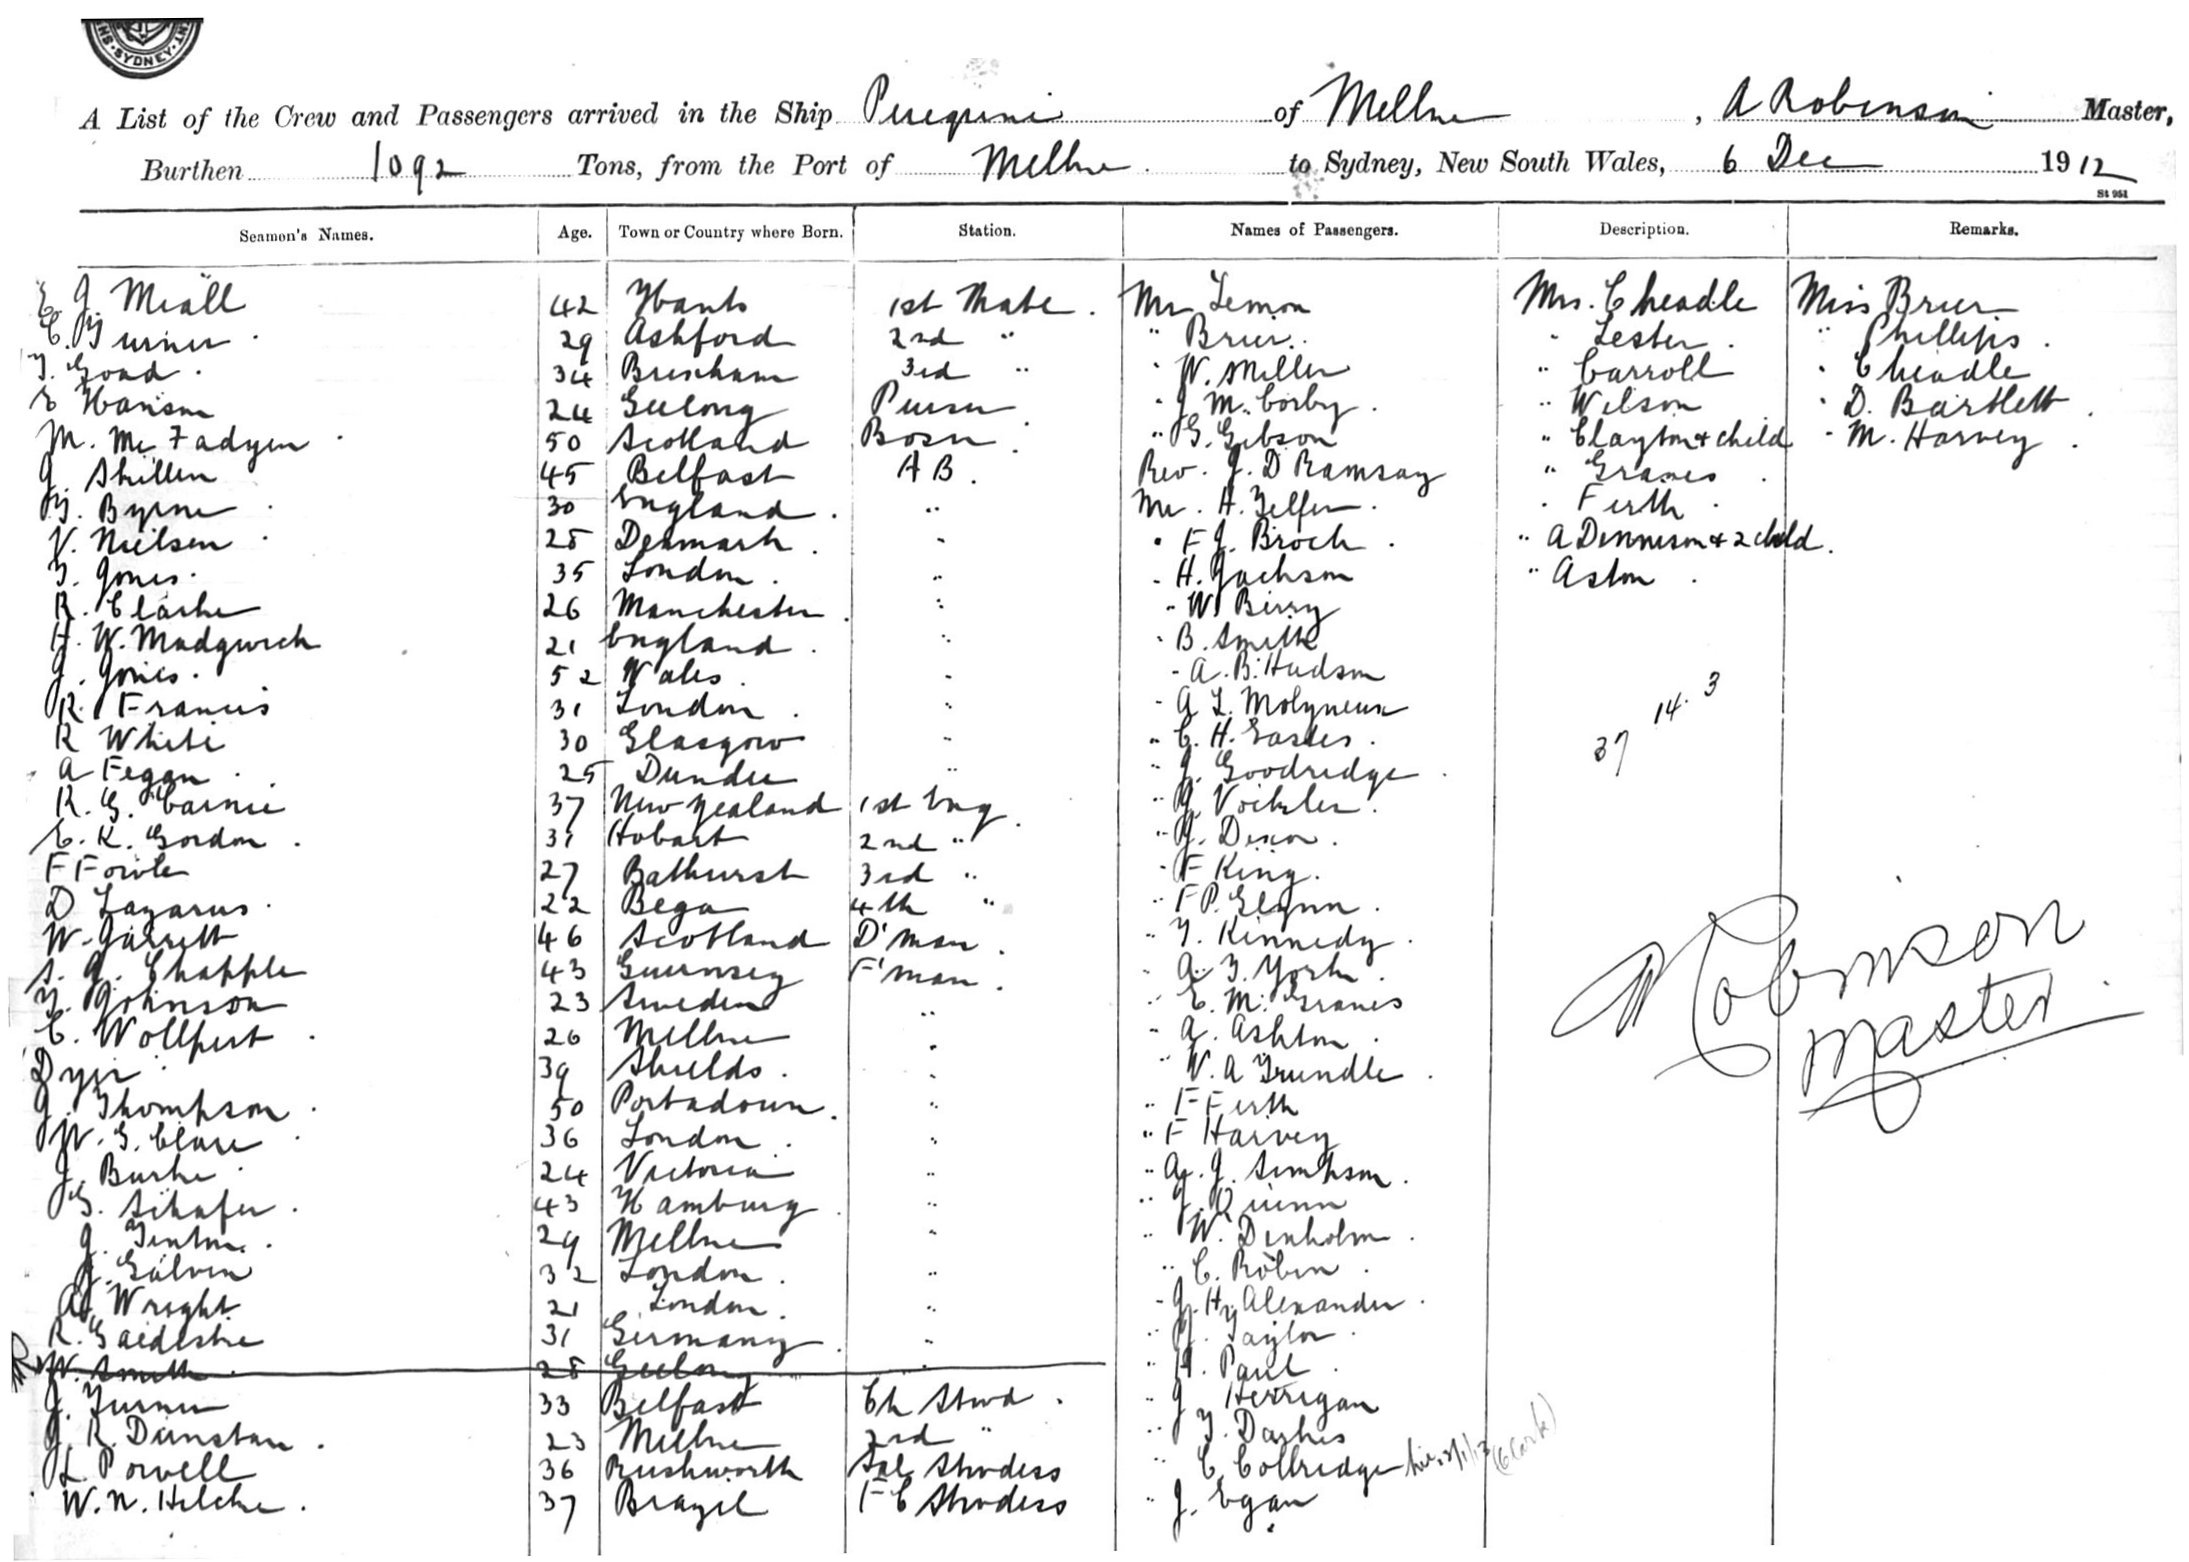 SYDNEY
A List of the Crew and Passengers arrived in the Ship Peregrine of Mellne, A Robinson Master,
Burthen 1092 Tons, from the Port of Mellne to Sydney, New South Wales, 6 Dec 1912
St 951
Seamen's Names. Age. Town or Country where Born. Station. Names of Passengers. Description. Remarks.
E. J. Miall 42 Hants 1st Mate. Mr Lemon Mrs. Cheadle Miss Brier
C. Turner. 29 Ashford 2nd " " Brier. " Lester. " Phillips.
T. Goad. 34 Brixham 3rd " " W. Miller " Carroll " Cheadle
E Hanson 24 Geelong Purser " J. M. Corby. " Wilson " D. Bartlett.
M. McFadyen. 50 Scotland Bosn. " G. Gibson " Clayton & child " M. Harvey.
J. Skillen 45 Belfast AB. Rev. J. D Ramsay " Graves.
T. Byrne. 30 England. " Mr. H. Telfer. " Firth.
V. Nielsen. 25 Denmark. " " F J. Brock. " A Dennison & 2 child.
T. Jones. 35 London. " " H. Jackson " Aston.
R. Clarke 26 Manchester. " " W. Berry
H. W. Madgwick 21 England. " " B. Smith
J. Jones. 52 Wales. " " A. B. Hudson
R. Francis 31 London. " " A L. Molyneux 37 14. 3
R White 30 Glasgow " " C. H. Eastes.
A Fegan. 25 Dundee " " J. Goodredge.
R. G. Cairnie 37 New Zealand 1st Eng. " J. Voitzler.
E. K. Gordon. 31 Hobart 2nd " " J. Dixon.
F Fowle 27 Bathurst 3rd " " F King.
D Lazarus. 22 Bega 4th " " F P. Glynn.
W. Garrett 46 Scotland D'man. " T. Kennedy.
S. J. Chapple 43 Guernsey F'man. " A. T. York.
T. Johnson 23 Sweden " " E. M. Graves
C. Wollpert. 26 Mellne " " A. Ashton.
Dyer. 39 Shields. " " W. A Trundle.
J. Thompson. 50 Portadown. " " F Firth
W. G. Clare. 36 London. " " F Harvey
J. Burke. 24 Victoria " " A. J. Simpson.
G. Schafer. 43 Hamburg. " " J. Quinn
J. Fenton. 29 Mellne " " W. Denholm.
J. Galvin 32 London. " " C. Robin.
A. Wright 21 London. " " J. H. Alexander.
R. Gaedeshe 31 Germany " " J. Taylor.
W. Smith 28 Geelong " " H. Paul
J. Turner 33 Belfast Ch Stwd. " J Herrigan
J. R. Dunstan. 23 Mellne 2nd " " T. Darkes
L Powell 36 Rushworth Sal Stwdess " C. Collredge
W. N. Helcke. 37 Brazil F C Stwdess " J. Egan
A Robinson
Master